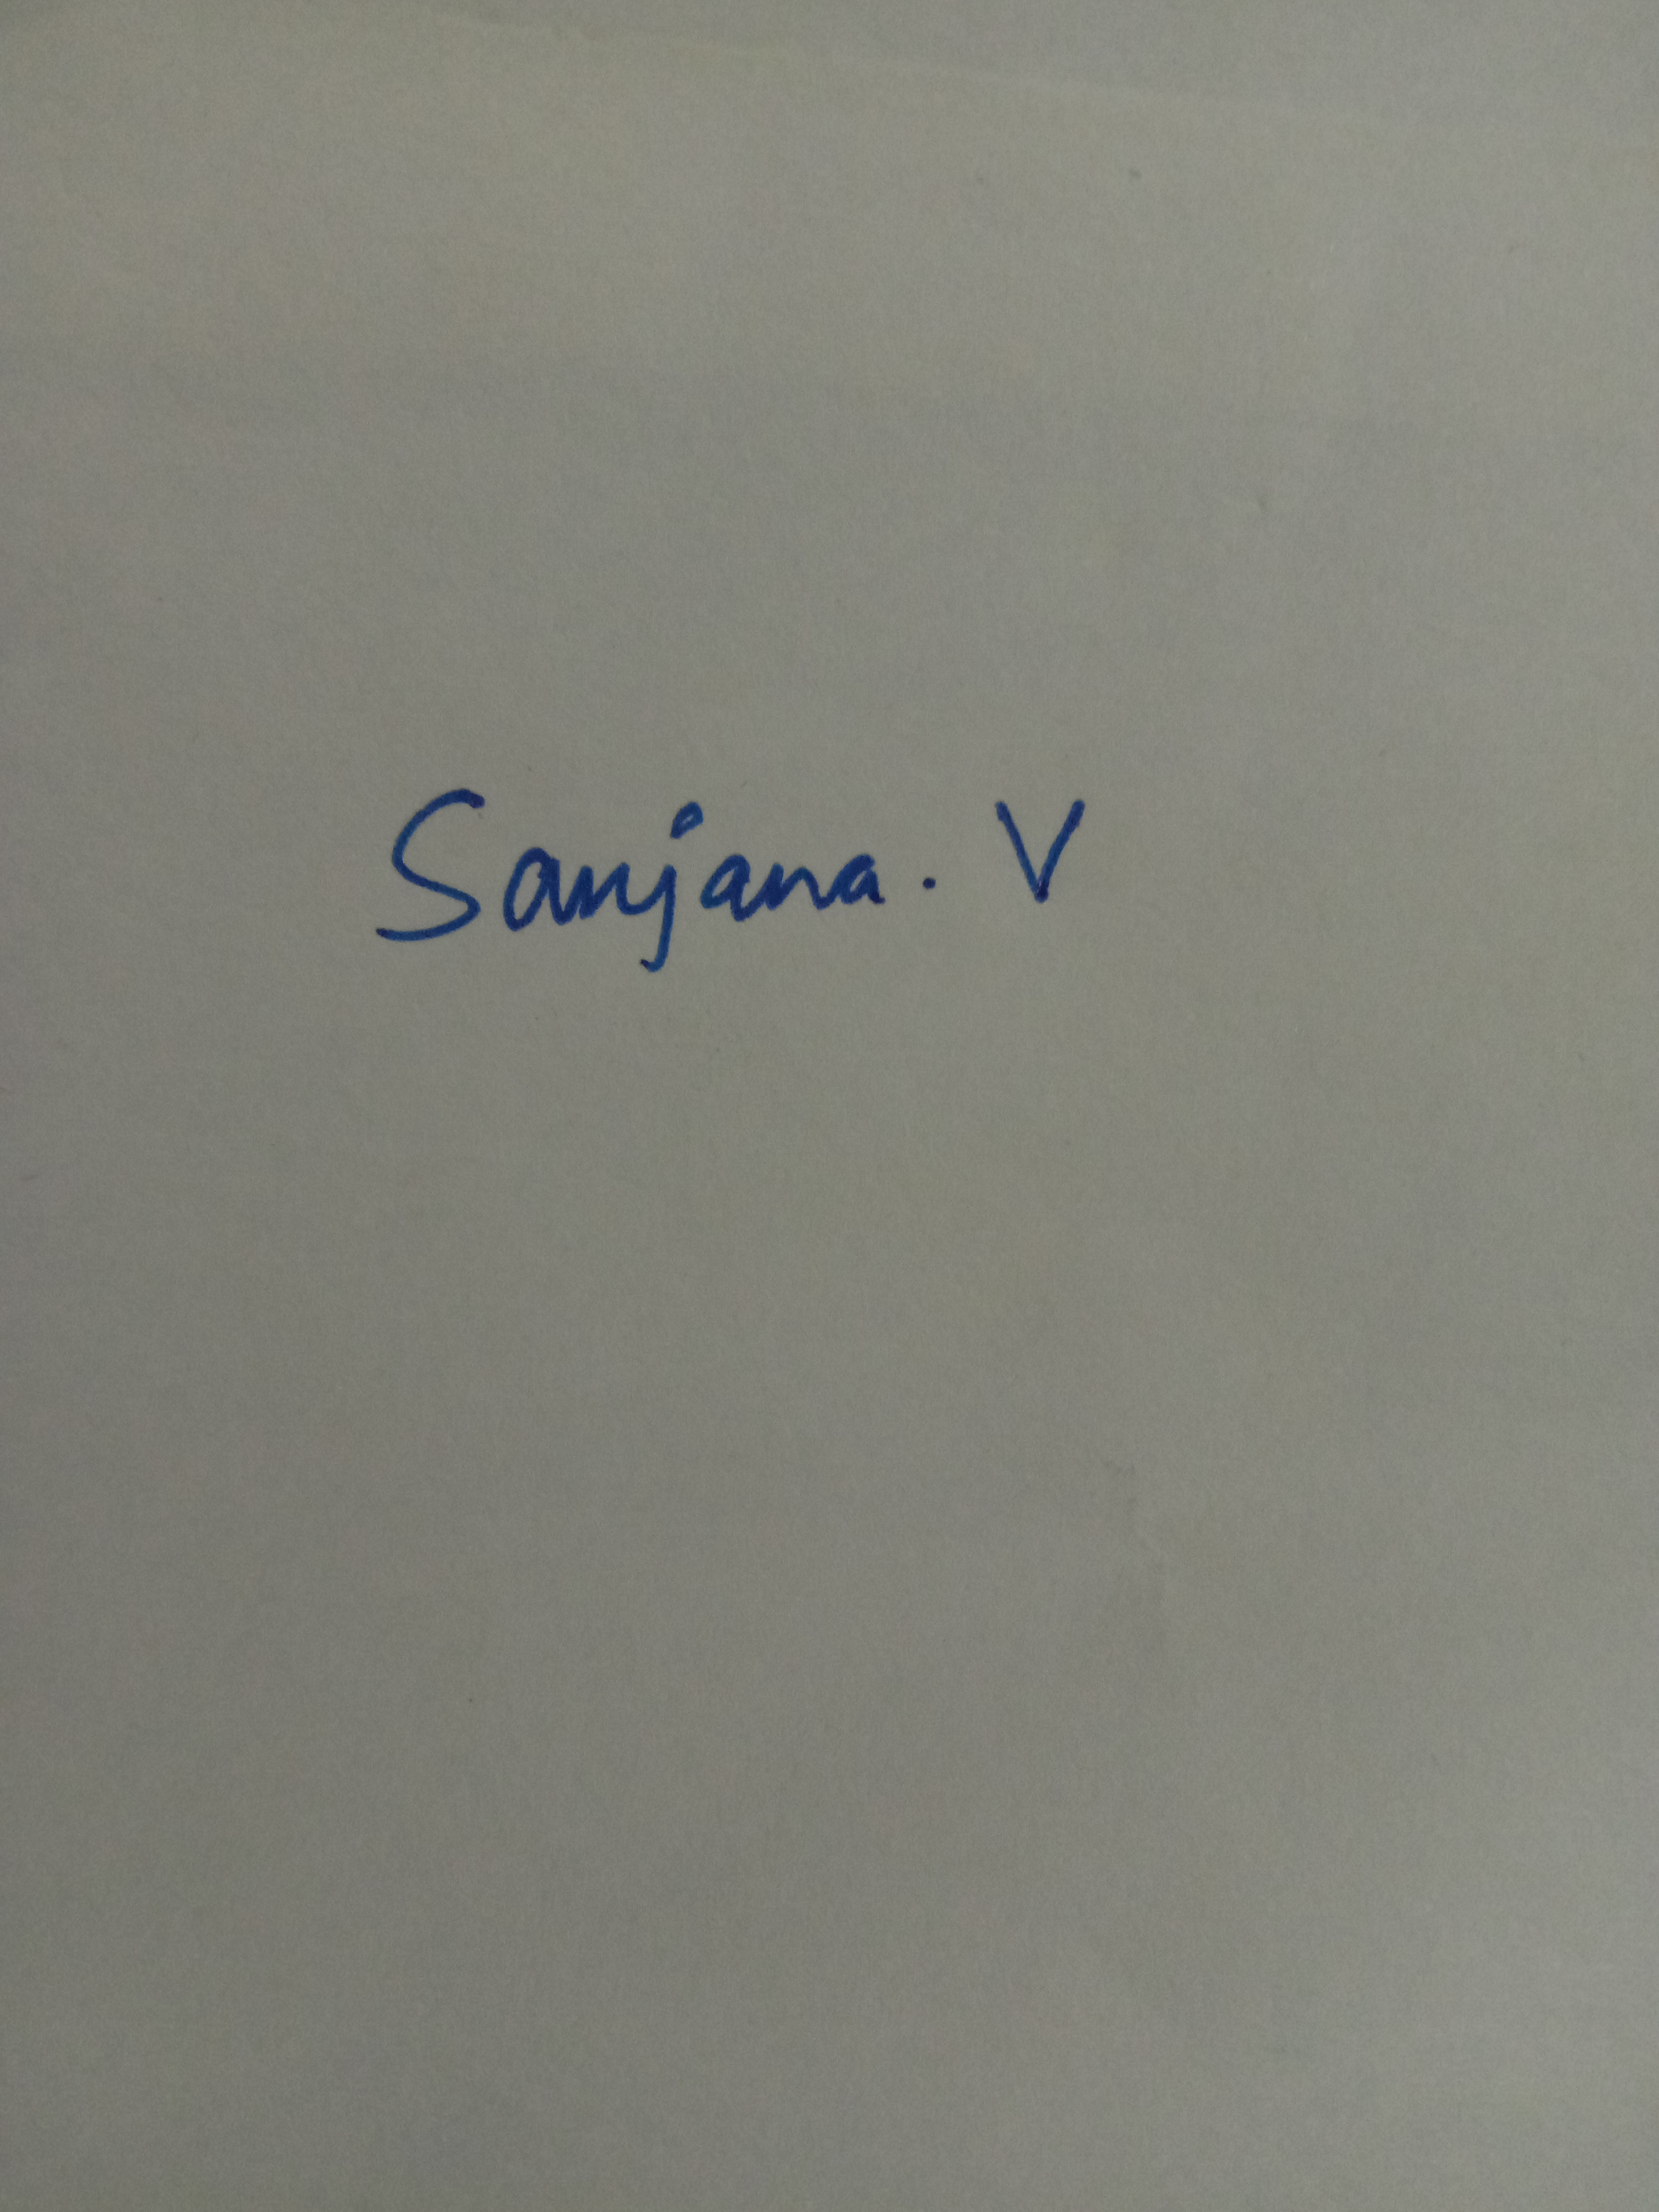 Sanjana. V